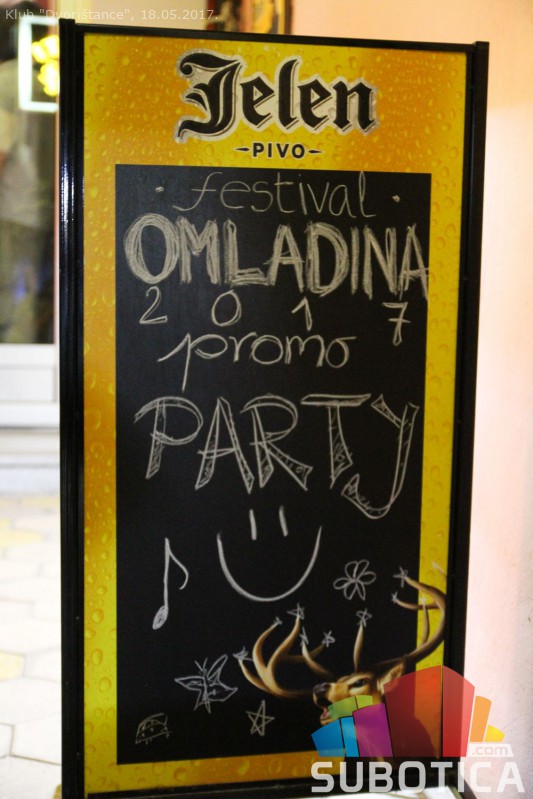 Klub "Dvorištance", 18.05.2017.
Jelen
PIVO
festival
OMLADINA
2017
promo
PARTY
.com
SUBOTICA